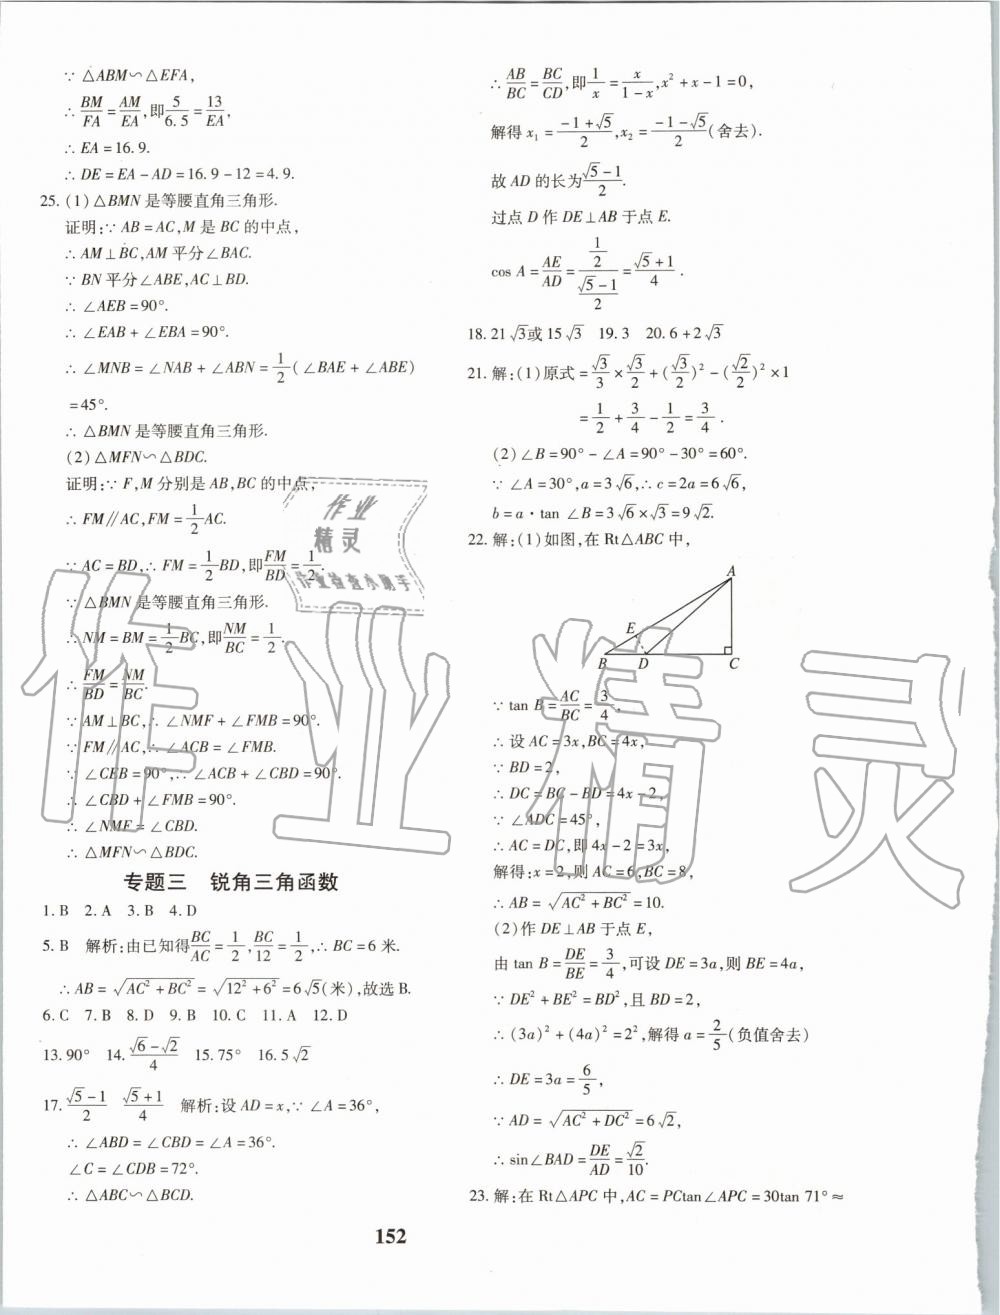 ∵ △ABM∽△EFA,
∴ BM/FA = AM/EA, 即 5/6.5 = 13/EA,
∴ EA = 16.9.
∴ DE = EA - AD = 16.9 - 12 = 4.9.
25. (1) △BMN 是等腰直角三角形.
证明: ∵ AB = AC, M 是 BC 的中点,
∴ AM⊥BC, AM 平分∠BAC.
∵ BN 平分∠ABE, AC⊥BD.
∴ ∠AEB = 90°.
∴ ∠EAB + ∠EBA = 90°.
∴ ∠MNB = ∠NAB + ∠ABN = 1/2 (∠BAE + ∠ABE)
= 45°.
∴ △BMN 是等腰直角三角形.
(2) △MFN∽△BDC.
证明: ∵ F, M 分别是 AB, BC 的中点,
∴ FM∥AC, FM = 1/2 AC.
∵ AC = BD, ∴ FM = 1/2 BD, 即 FM/BD = 1/2.
∵ △BMN 是等腰直角三角形.
∴ NM = BM = 1/2 BC, 即 NM/BC = 1/2.
∴ FM/BD = NM/BC.
∵ AM⊥BC, ∴ ∠NMF + ∠FMB = 90°.
∵ FM∥AC, ∴ ∠ACB = ∠FMB.
∵ ∠CEB = 90°, ∴ ∠ACB + ∠CBD = 90°.
∴ ∠CBD + ∠FMB = 90°.
∴ ∠NMF = ∠CBD.
∴ △MFN∽△BDC.
专题三 锐角三角函数
1. B 2. A 3. B 4. D
5. B 解析: 由已知得 BC/AC = 1/2, BC/12 = 1/2, ∴ BC = 6 米.
∴ AB = √(AC² + BC²) = √(12² + 6²) = 6√5 (米), 故选 B.
6. C 7. B 8. D 9. B 10. C 11. A 12. D
13. 90° 14. (√6 - √2)/4 15. 75° 16. 5√2
17. (√5 - 1)/2 (√5 + 1)/4 解析: 设 AD = x, ∵ ∠A = 36°,
∴ ∠ABD = ∠CBD = ∠A = 36°.
∠C = ∠CDB = 72°.
∴ △ABC∽△BCD.
∴ AB/BC = BC/CD, 即 1/x = x/(1 - x), x² + x - 1 = 0,
解得 x₁ = (-1 + √5)/2, x₂ = (-1 - √5)/2 (舍去).
故 AD 的长为 (√5 - 1)/2.
过点 D 作 DE⊥AB 于点 E.
cos A = AE/AD = (1/2)/((√5 - 1)/2) = (√5 + 1)/4.
18. 21√3 或 15√3 19. 3 20. 6 + 2√3
21. 解: (1) 原式 = √3/3 × √3/2 + (√3/2)² - (√2/2)² × 1
= 1/2 + 3/4 - 1/2 = 3/4.
(2) ∠B = 90° - ∠A = 90° - 30° = 60°.
∵ ∠A = 30°, a = 3√6, ∴ c = 2a = 6√6,
b = a · tan ∠B = 3√6 × √3 = 9√2.
22. 解: (1) 如图, 在 Rt△ABC 中,
A
E
B D C
∵ tan B = AC/BC = 3/4,
∴ 设 AC = 3x, BC = 4x,
∵ BD = 2,
∴ DC = BC - BD = 4x - 2,
∵ ∠ADC = 45°,
∴ AC = DC, 即 4x - 2 = 3x,
解得: x = 2, 则 AC = 6, BC = 8,
∴ AB = √(AC² + BC²) = 10.
(2) 作 DE⊥AB 于点 E,
由 tan B = DE/BE = 3/4, 可设 DE = 3a, 则 BE = 4a,
∵ DE² + BE² = BD², 且 BD = 2,
∴ (3a)² + (4a)² = 2², 解得 a = 2/5 (负值舍去)
∴ DE = 3a = 6/5,
∵ AD = √(AC² + DC²) = 6√2,
∴ sin∠BAD = DE/AD = √2/10.
23. 解: 在 Rt△APC 中, AC = PCtan∠APC = 30tan 71° ≈
152
作业
精灵
作业检查小助手
作业精灵